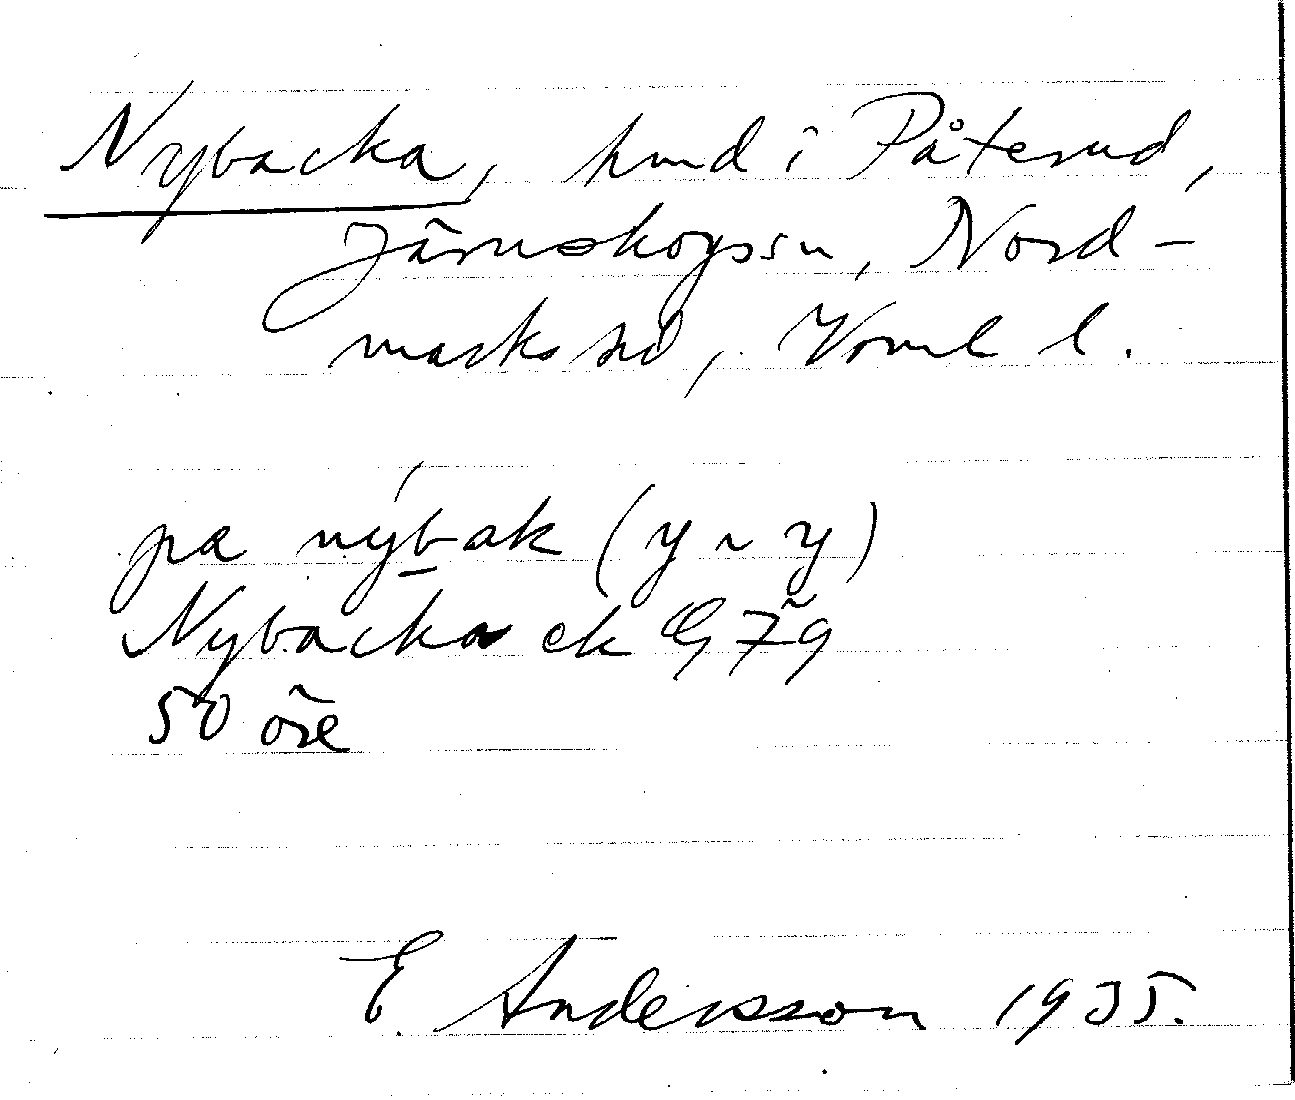 Nybacka, hmd i Påterud,
Järnskogssn, Nord-
marks hd, Vrml l.
pa nybak (y ~ y)
Nybacka ek G 79
50 öre
E. Andersson 1935.